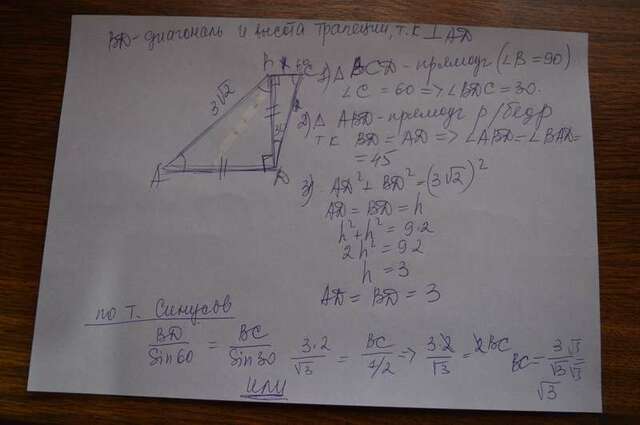 BD-диагональ и высота трапеции, т.к ⊥ AD
B
C
3√2
A
D
1) △ BCD - прямоуг (∠B = 90)
∠C = 60 => ∠BDC = 30.
2) △ ABD - прямоуг р/бедр
т.к BD = AD => ∠ABD = ∠BAD =
= 45
3) AD² + BD² = (3√2)²
AD = BD = h
h² + h² = 9·2
2h² = 92
h = 3
AD = BD = 3
по т. Синусов
BD/Sin60 = BC/Sin30 3·2/√3 = BC/1/2 => 3·2/√3 = 2BC BC = 3√3/√3√3
√3
или